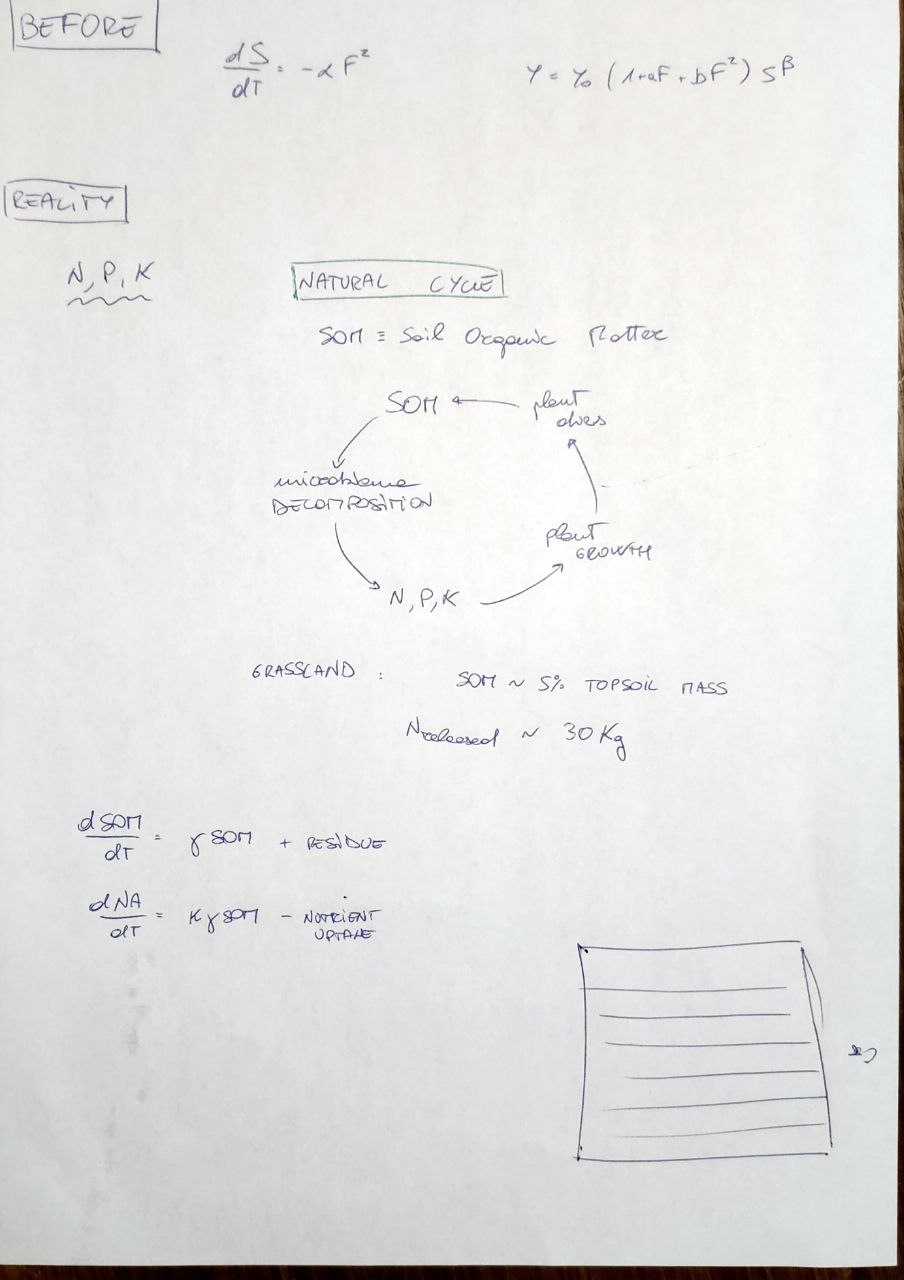 BEFORE
dS/dT = -αF² Y = Y₀ (1+aF+bF²) S^β
REALITY
N, P, K
NATURAL CYCLE
SOM ≡ Soil Organic Matter
SOM plant
dies
microbiome
DECOMPOSITION
plant
GROWTH
N, P, K
GRASSLAND : SOM ~ 5% TOPSOIL MASS
N released ~ 30 Kg
dSOM/dT = γ SOM + RESIDUE
dNA/dT = K γ SOM - NUTRIENT
UPTAKE